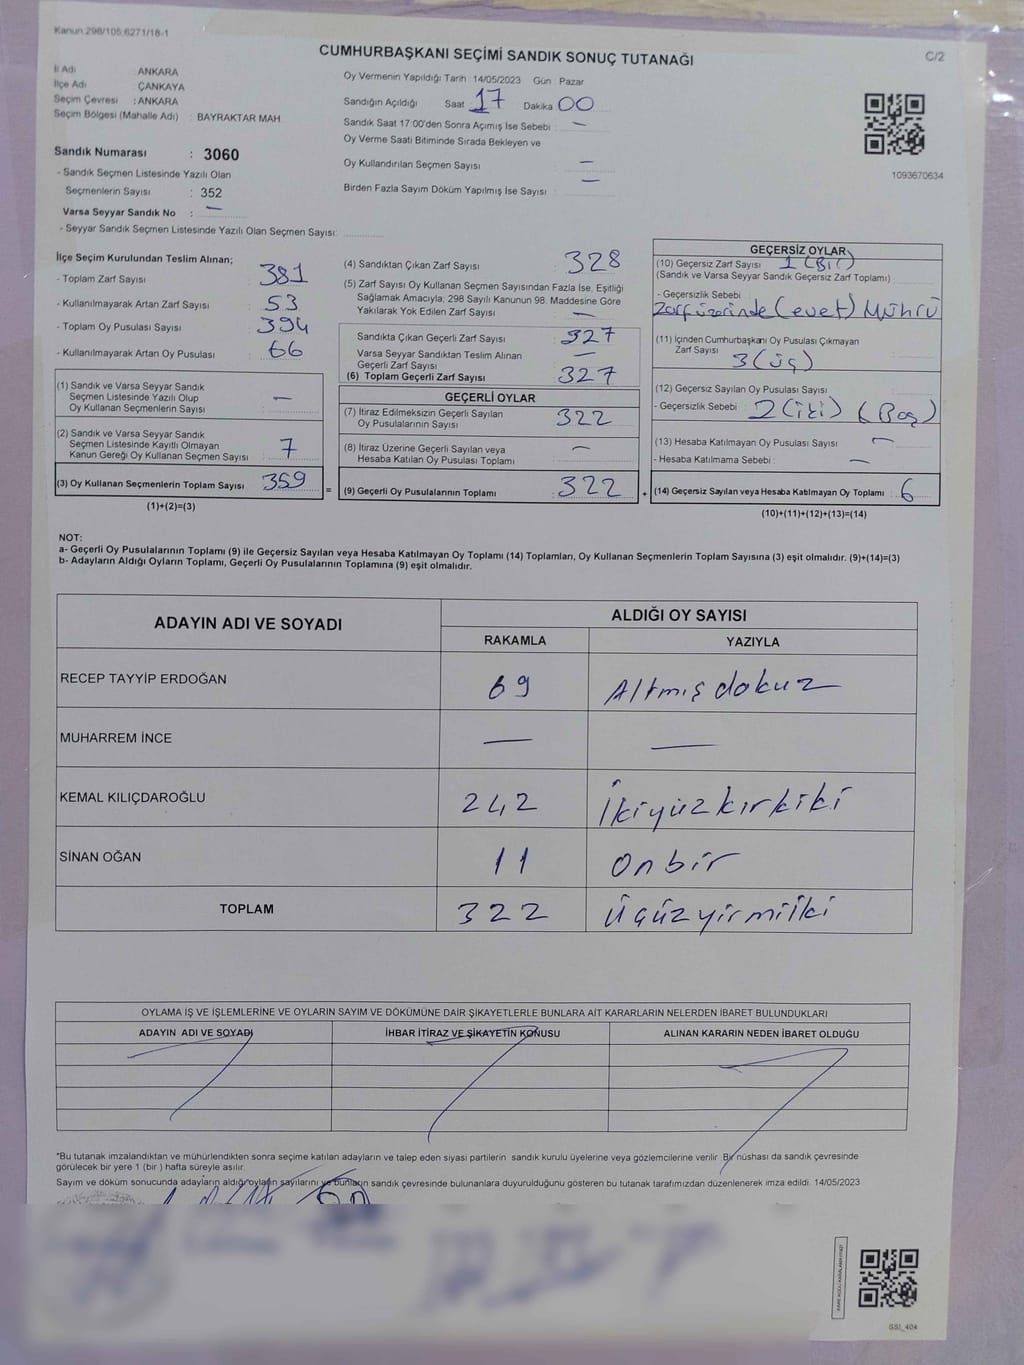 Kanun 298/105,6271/18-1
CUMHURBAŞKANI SEÇİMİ SANDIK SONUÇ TUTANAĞI
C/2
İl Adı : ANKARA
İlçe Adı : ÇANKAYA
Seçim Çevresi : ANKARA
Seçim Bölgesi (Mahalle Adı) : BAYRAKTAR MAH
Sandık Numarası : 3060
- Sandık Seçmen Listesinde Yazılı Olan
Seçmenlerin Sayısı : 352
Varsa Seyyar Sandık No : —
- Seyyar Sandık Seçmen Listesinde Yazılı Olan Seçmen Sayısı:
Oy Vermenin Yapıldığı Tarih : 14/05/2023 Gün : Pazar
Sandığın Açıldığı Saat 17 Dakika 00
Sandık Saat 17:00'den Sonra Açımış İse Sebebi : —
Oy Verme Saati Bitiminde Sırada Bekleyen ve
Oy Kullandırılan Seçmen Sayısı —
Birden Fazla Sayım Döküm Yapılmış İse Sayısı : —
1093670634
İlçe Seçim Kurulundan Teslim Alınan;
- Toplam Zarf Sayısı : 381
- Kullanılmayarak Artan Zarf Sayısı : 53
- Toplam Oy Pusulası Sayısı : 394
- Kullanılmayarak Artan Oy Pusulası : 66
(1) Sandık ve Varsa Seyyar Sandık
Seçmen Listesinde Yazılı Olup
Oy Kullanan Seçmenlerin Sayısı : —
(2) Sandık ve Varsa Seyyar Sandık
Seçmen Listesinde Kayıtlı Olmayan
Kanun Gereği Oy Kullanan Seçmen Sayısı : 7
(3) Oy Kullanan Seçmenlerin Toplam Sayısı : 359
(1)+(2)=(3)
(4) Sandıktan Çıkan Zarf Sayısı : 328
(5) Zarf Sayısı Oy Kullanan Seçmen Sayısından Fazla İse, Eşitliği
Sağlamak Amacıyla; 298 Sayılı Kanunun 98. Maddesine Göre
Yakılarak Yok Edilen Zarf Sayısı : —
Sandıkta Çıkan Geçerli Zarf Sayısı : 327
Varsa Seyyar Sandıktan Teslim Alınan
Geçerli Zarf Sayısı : —
(6) Toplam Geçerli Zarf Sayısı : 327
GEÇERLİ OYLAR
(7) İtiraz Edilmeksizin Geçerli Sayılan
Oy Pusulalarının Sayısı : 322
(8) İtiraz Üzerine Geçerli Sayılan veya
Hesaba Katılan Oy Pusulası Toplamı : —
= (9) Geçerli Oy Pusulalarının Toplamı : 322
GEÇERSİZ OYLAR
(10) Geçersiz Zarf Sayısı : 1 (Bir)
(Sandık ve Varsa Seyyar Sandık Geçersiz Zarf Toplamı)
- Geçersizlik Sebebi
Zarf üzerinde (evet) Mührü
(11) İçinden Cumhurbaşkanı Oy Pusulası Çıkmayan
Zarf Sayısı : 3 (üç)
(12) Geçersiz Sayılan Oy Pusulası Sayısı :
- Geçersizlik Sebebi : 2 (iki) (Boş)
(13) Hesaba Katılmayan Oy Pusulası Sayısı : —
- Hesaba Katılmama Sebebi : —
+ (14) Geçersiz Sayılan veya Hesaba Katılmayan Oy Toplamı : 6
(10)+(11)+(12)+(13)=(14)
NOT:
a- Geçerli Oy Pusulalarının Toplamı (9) ile Geçersiz Sayılan veya Hesaba Katılmayan Oy Toplamı (14) Toplamları, Oy Kullanan Seçmenlerin Toplam Sayısına (3) eşit olmalıdır. (9)+(14)=(3)
b- Adayların Aldığı Oyların Toplamı, Geçerli Oy Pusulalarının Toplamına (9) eşit olmalıdır.
ADAYIN ADI VE SOYADI
ALDIĞI OY SAYISI
RAKAMLA YAZIYLA
RECEP TAYYİP ERDOĞAN 69 Altmış dokuz
MUHARREM İNCE — —
KEMAL KILIÇDAROĞLU 242 İkiyüz kırk iki
SİNAN OĞAN 11 on bir
TOPLAM 322 Üçüz yirmi iki
OYLAMA İŞ VE İŞLEMLERİNE VE OYLARIN SAYIM VE DÖKÜMÜNE DAİR ŞİKAYETLERLE BUNLARA AİT KARARLARIN NELERDEN İBARET BULUNDUKLARI
ADAYIN ADI VE SOYADI İHBAR İTİRAZ VE ŞİKAYETİN KONUSU ALINAN KARARIN NEDEN İBARET OLDUĞU
*Bu tutanak imzalandıktan ve mühürlendikten sonra seçime katılan adayların ve talep eden siyasi partilerin sandık kurulu üyelerine veya gözlemcilerine verilir. Bir nüshası da sandık çevresinde
görülecek bir yere 1 (bir ) hafta süreyle asılır.
Sayım ve döküm sonucunda adayların aldığı oyların sayılarını ve bunların sandık çevresinde bulunanlara duyurulduğunu gösteren bu tutanak tarafımızdan düzenlenerek imza edildi. 14/05/2023
SSI_404